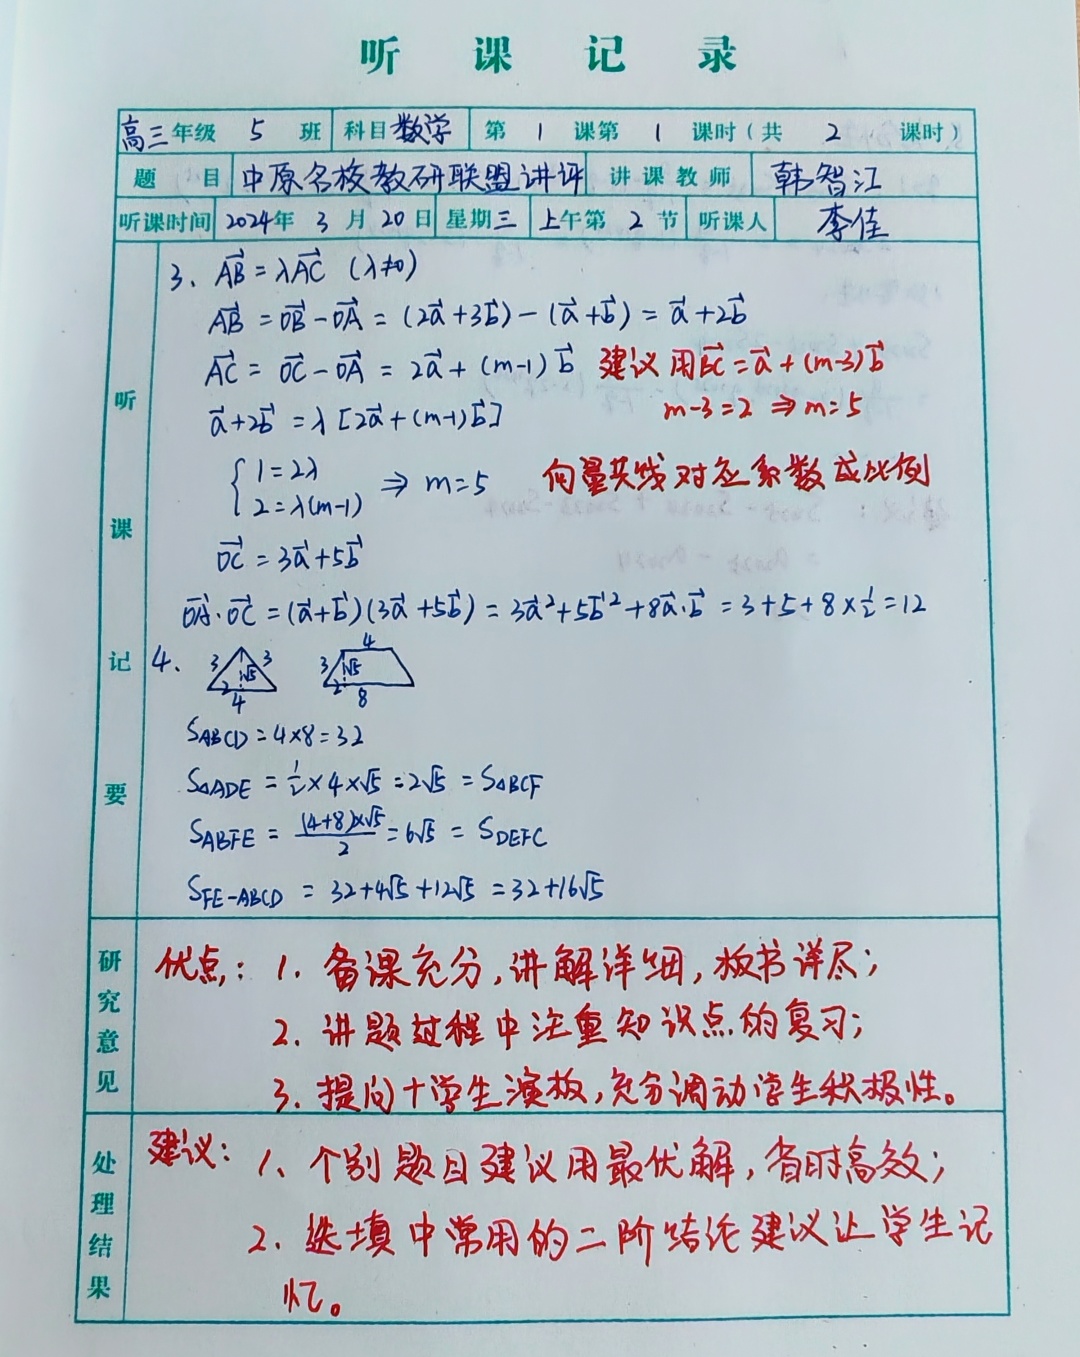 听课记录
高三年级 5 班 科目 数学 第 1 课第 1 课时(共 2 课时)
题目 中原名校教研联盟讲评 讲课教师 韩智江
听课时间 2024年 3 月 20 日 星期三 上午第 2 节 听课人 李佳
听课记要
3、AB⃗ = λAC⃗ (λ≠0)
AB⃗ = OB⃗ - OA⃗ = (2a⃗+3b⃗) - (a⃗+b⃗) = a⃗+2b⃗
AC⃗ = OC⃗ - OA⃗ = 2a⃗ + (m-1)b⃗ 建议用BC⃗ = a⃗ + (m-3)b⃗
a⃗+2b⃗ = λ[2a⃗+(m-1)b⃗] m-3=2 ⇒ m=5
{1=2λ
2=λ(m-1) ⇒ m=5 向量共线对应系数成比例
OC⃗ = 3a⃗+5b⃗
OA⃗·OC⃗ = (a⃗+b⃗)(3a⃗+5b⃗) = 3a⃗²+5b⃗²+8a⃗·b⃗ = 3+5+8×½=12
4、 3 3 √5 2 4 4 3 √5 2 8
S_ABCD = 4×8=32
S△ADE = ½×4×√5=2√5 = S△BCF
S_ABFE = (4+8)×√5/2 = 6√5 = S_DEFC
S_FE-ABCD = 32+4√5+12√5 = 32+16√5
研究意见
优点: 1. 备课充分,讲解详细,板书详尽;
2. 讲题过程中注重知识点的复习;
3. 提问+学生演板,充分调动学生积极性。
处理结果
建议: 1、个别题目建议用最优解,省时高效;
2. 选填中常用的二阶结论建议让学生记
忆。